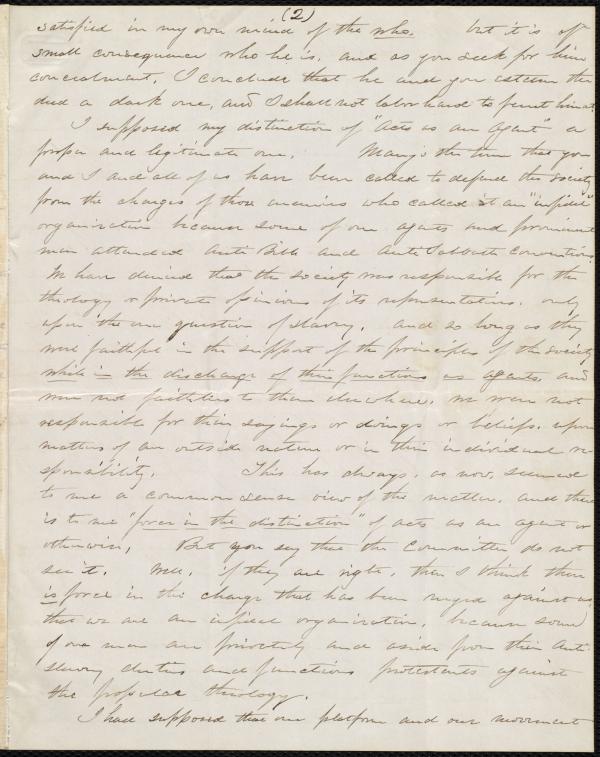 (2)
satisfied in my own mind of the who. but it is of
small consequence who he is, and as you seek for him
concealment, I conclude that he and you esteem the
deed a dark one, and I shall not labor hard to ferret him out.
I supposed my distinction of "Acts as an Agent" a
proper and legitimate one. Many's the time that you
and I and all of us have been called to defend the Society
from the charges of those enemies who called it an "infidel"
organization because some of our agents and prominent
men attended Anti Bible and Anti Sabbath Conventions.
We have denied that the society was responsible for the
theology or private opinions of its representatives, only
upon the one question of slavery, and so long as they
were faithful in the support of the principles of the society
while in the discharge of their functions as agents, and
were not faithless to them elsewhere, we were not
responsible for their sayings or doings or beliefs, upon
matters of an outside nature or in their individual re-
sponsibility. This has always, as now, seemed
to me a common sense view of the matter, and there
is to me "force in the distinction" of acts as an agent or
otherwise. But you say that the Committee do not
see it. Well, if they are right, then I think there
is force in the charge that has been urged against us,
that we are an infidel organization, because some
of our men are privately and aside from their Anti-
slavery duties and functions protestants against
the popular theology.
I had supposed that our platform and our movement